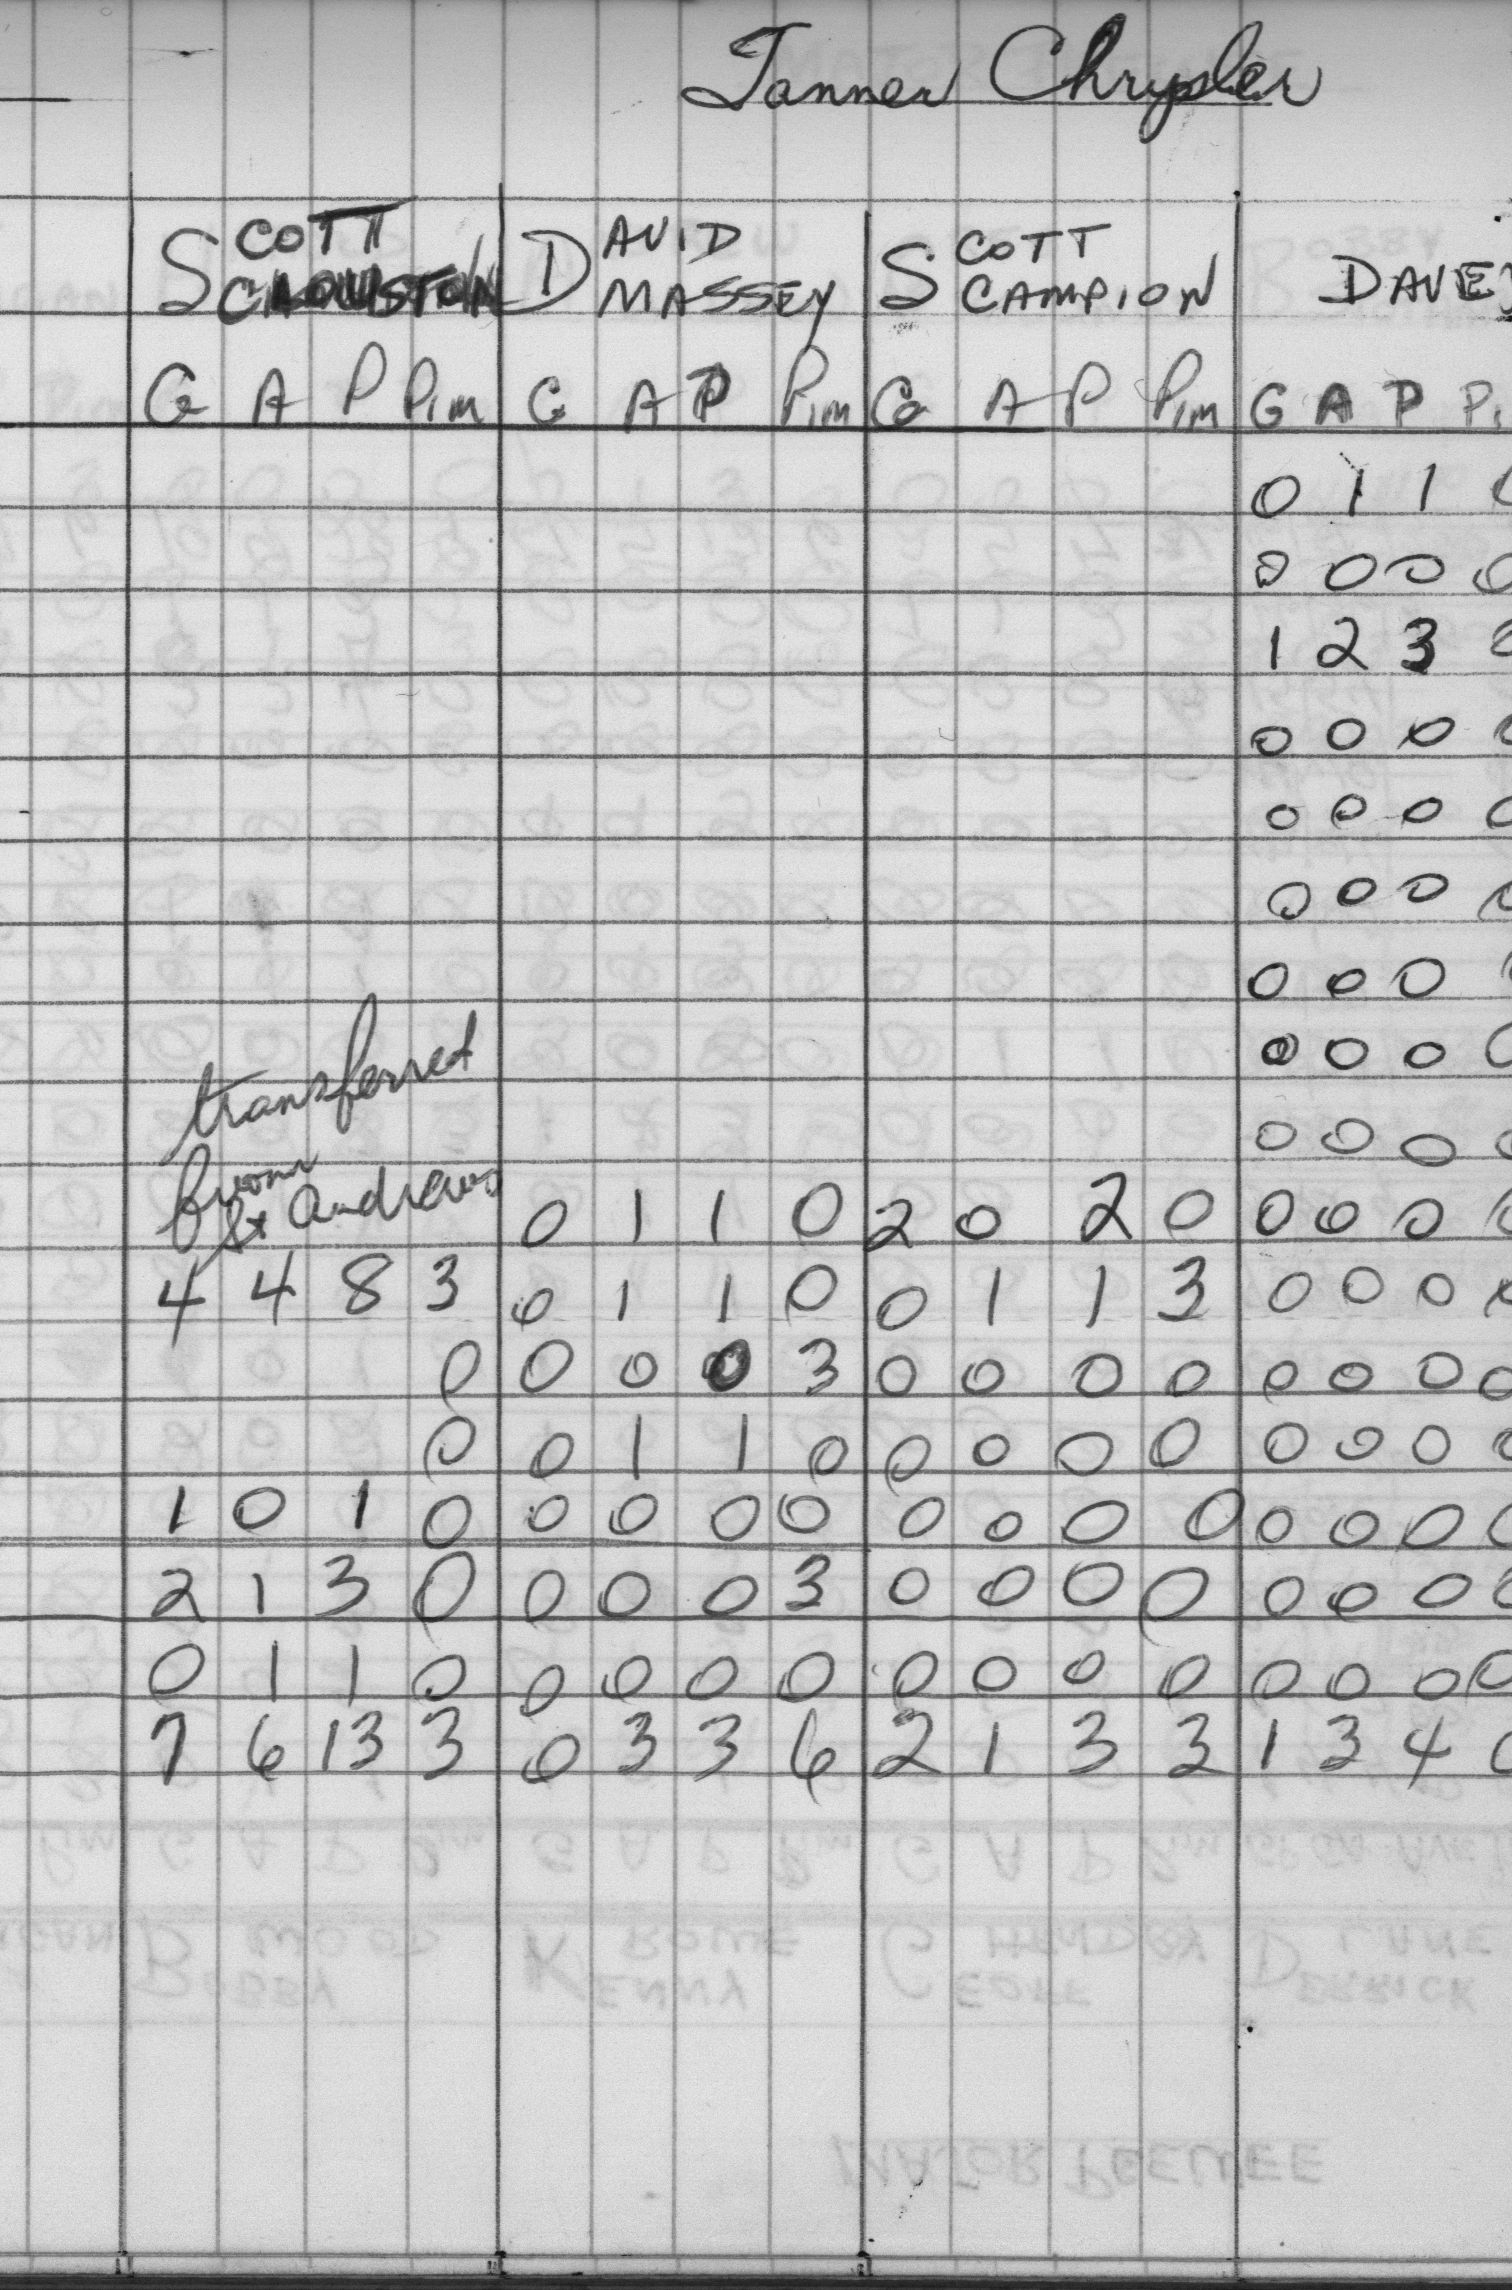 Tanner Chrysler
SCOTT DAVID SCOTT
MASSEY CAMPION DAVE
G A P Pim G A P Pim G A P Pim G A P Pi
0 1 1
0 0 0 0
1 2 3
0 0 0
0 0 0
0 0 0
0 0 0
0 0 0
transferred
0 0 0
from
St Andrews 0 1 1 0 2 0 2 0 0 0 0
4 4 8 3 0 1 1 0 0 1 1 3 0 0 0
0 0 0 0 3 0 0 0 0 0 0 0 0
0 0 1 1 0 0 0 0 0 0 0 0
1 0 1 0 0 0 0 0 0 0 0 0 0 0 0
2 1 3 0 0 0 0 3 0 0 0 0 0 0 0
0 1 1 0 0 0 0 0 0 0 0 0 0 0 0 0
7 6 13 3 0 3 3 6 2 1 3 3 1 3 4